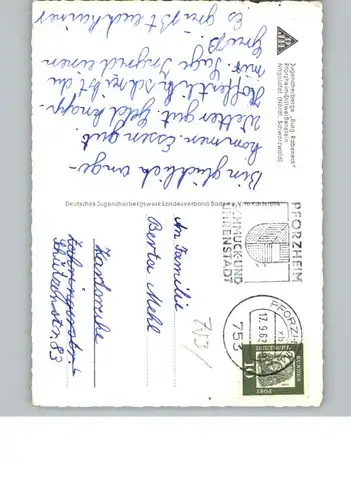 Jugendherberge „Burg Rabeneck"
Pforzheim-Dillweißenstein
Nagoldtal (Nördl. Schwarzwald)
Bin glücklich ange-
kommen. Essen gut.
Wetter gut. Geld knapp.
Hoffentlich schreibst du
mir. Sage Ingrid einen
Gruß.
Es grüßt euch
Deutsches Jugendherbergswerk Landesverband Baden e. V. Karlsruhe
PFORZHEIM
SCHMUCK UND
UHRENSTADT
PFORZHEIM
17.9.62
753
DEUTSCHE BUNDESPOST
10
An Familie
Berta Mehl
Karlsruhe
753/